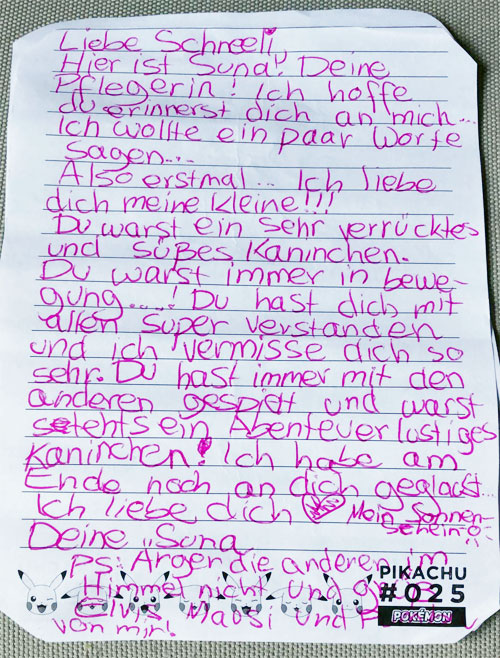 Liebe Schneeli,
Hier ist Suna! Deine
Pflegerin! Ich hoffe
du erinnerst dich an mich...
Ich wollte ein paar Worte
sagen...
Also erstmal... Ich liebe
dich meine kleine!!!
Du warst ein sehr verrücktes
und süßes Kaninchen.
Du warst immer in bewe-
gung....! Du hast dich mit
allen super verstanden
und ich vermisse dich so
sehr. Du hast immer mit den
anderen gespielt und warst
stehts ein Abenteuerlustiges
Kaninchen! Ich habe am
Ende noch an dich geglaubt...
Ich liebe dich Mein Sonnen-
schein
Deine "Suna
PS: Ärger die anderen im
Himmel nicht und
Elvis Mausi und
von mir!
PIKACHU
#025
POKÉMON